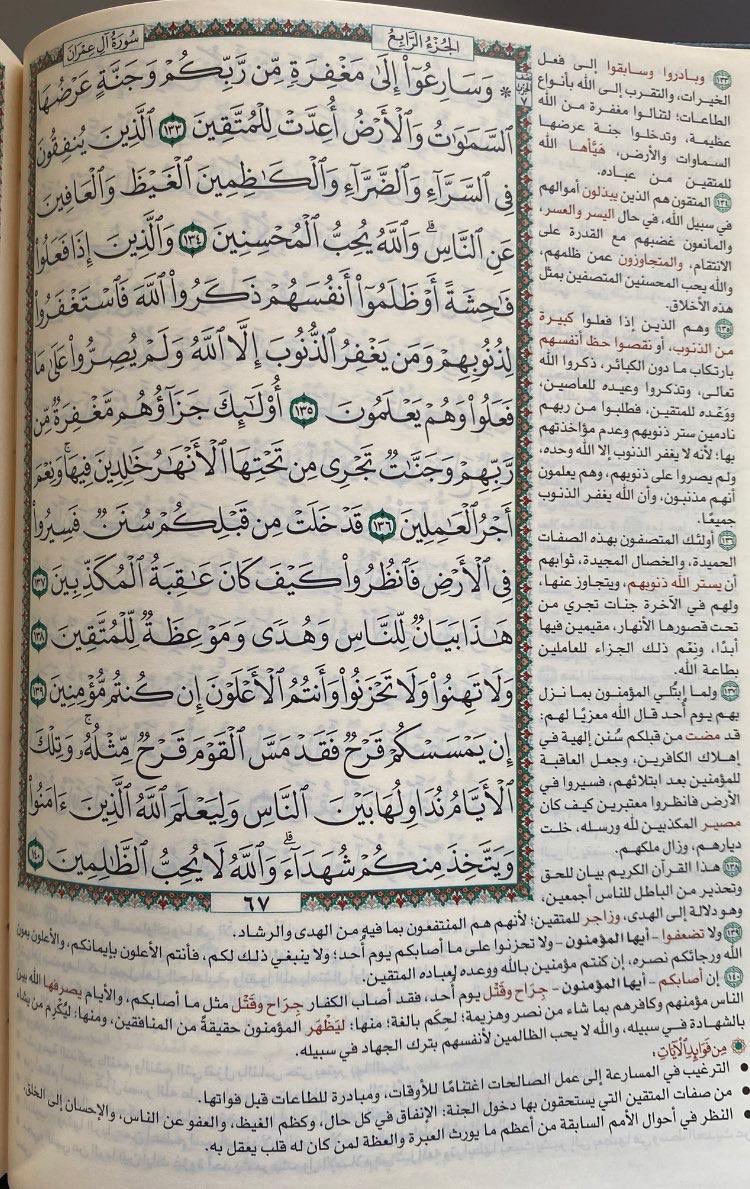 سُورَةُ آلِ عِمْرَان
الجُزْءُ الرَّابِعُ
* وَسَارِعُوٓاْ إِلَىٰ مَغْفِرَةٖ مِّن رَّبِّكُمْ وَجَنَّةٍ عَرْضُهَا
ٱلسَّمَٰوَٰتُ وَٱلْأَرْضُ أُعِدَّتْ لِلْمُتَّقِينَ ١٣٣ ٱلَّذِينَ يُنفِقُونَ
فِي ٱلسَّرَّآءِ وَٱلضَّرَّآءِ وَٱلْكَٰظِمِينَ ٱلْغَيْظَ وَٱلْعَافِينَ
عَنِ ٱلنَّاسِۗ وَٱللَّهُ يُحِبُّ ٱلْمُحْسِنِينَ ١٣٤ وَٱلَّذِينَ إِذَا فَعَلُواْ
فَٰحِشَةً أَوْ ظَلَمُوٓاْ أَنفُسَهُمْ ذَكَرُواْ ٱللَّهَ فَٱسْتَغْفَرُواْ
لِذُنُوبِهِمْ وَمَن يَغْفِرُ ٱلذُّنُوبَ إِلَّا ٱللَّهُ وَلَمْ يُصِرُّواْ عَلَىٰ مَا
فَعَلُواْ وَهُمْ يَعْلَمُونَ ١٣٥ أُوْلَٰٓئِكَ جَزَآؤُهُم مَّغْفِرَةٞ مِّن
رَّبِّهِمْ وَجَنَّٰتٞ تَجْرِي مِن تَحْتِهَا ٱلْأَنْهَٰرُ خَٰلِدِينَ فِيهَاۚ وَنِعْمَ
أَجْرُ ٱلْعَٰمِلِينَ ١٣٦ قَدْ خَلَتْ مِن قَبْلِكُمْ سُنَنٞ فَسِيرُواْ
فِي ٱلْأَرْضِ فَٱنظُرُواْ كَيْفَ كَانَ عَٰقِبَةُ ٱلْمُكَذِّبِينَ ١٣٧
هَٰذَا بَيَانٞ لِّلنَّاسِ وَهُدٗى وَمَوْعِظَةٞ لِّلْمُتَّقِينَ ١٣٨
وَلَا تَهِنُواْ وَلَا تَحْزَنُواْ وَأَنتُمُ ٱلْأَعْلَوْنَ إِن كُنتُم مُّؤْمِنِينَ ١٣٩
إِن يَمْسَسْكُمْ قَرْحٞ فَقَدْ مَسَّ ٱلْقَوْمَ قَرْحٞ مِّثْلُهُۥۚ وَتِلْكَ
ٱلْأَيَّامُ نُدَاوِلُهَا بَيْنَ ٱلنَّاسِ وَلِيَعْلَمَ ٱللَّهُ ٱلَّذِينَ ءَامَنُواْ
وَيَتَّخِذَ مِنكُمْ شُهَدَآءَۗ وَٱللَّهُ لَا يُحِبُّ ٱلظَّٰلِمِينَ ١٤٠
٦٧
١٣٣ وبادروا وسابقوا إلى فعل
الخيرات، والتقرب إلى الله بأنواع
الطاعات؛ لتنالوا مغفرة من الله
عظيمة، وتدخلوا جنة عرضها
السماوات والأرض، هَيَّأها الله
للمتقين من عباده.
١٣٤ المتقون هم الذين يبذلون أموالهم
في سبيل الله، في حال اليسر والعسر،
والمانعون غضبهم مع القدرة على
الانتقام، والمتجاوزون عمن ظلمهم،
والله يحب المحسنين المتصفين بمثل
هذه الأخلاق.
١٣٥ وهم الذين إذا فعلوا كبيرة
من الذنوب، أو نقصوا حظ أنفسهم
بارتكاب ما دون الكبائر، ذكروا الله
تعالى، وتذكروا وعيده للعاصين،
ووَعْده للمتقين، فطلبوا من ربهم
نادمين ستر ذنوبهم وعدم مؤاخذتهم
بها؛ لأنه لا يغفر الذنوب إلا الله وحده،
ولم يصروا على ذنوبهم، وهم يعلمون
أنهم مذنبون، وأن الله يغفر الذنوب
جميعًا.
١٣٦ أولئك المتصفون بهذه الصفات
الحميدة، والخصال المجيدة، ثوابهم
أن يستر الله ذنوبهم، ويتجاوز عنها،
ولهم في الآخرة جنات تجري من
تحت قصورها الأنهار، مقيمين فيها
أبدًا، ونعْم ذلك الجزاء للعاملين
بطاعة الله.
١٣٧ ولما ابتُلي المؤمنون بما نزل
بهم يوم أُحد قال الله معزيًا لهم:
قد مضت من قبلكم سُنن إلهية في
إهلاك الكافرين، وجعل العاقبة
للمؤمنين بعد ابتلائهم، فسيروا في
الأرض فانظروا معتبرين كيف كان
مصير المكذبين لله ورسله، خلت
ديارهم، وزال ملكهم.
١٣٨ هذا القرآن الكريم بيان للحق
وتحذير من الباطل للناس أجمعين،
وهو دلالة إلى الهدى، وزاجر للمتقين؛ لأنهم هم المنتفعون بما فيه من الهدى والرشاد.
١٣٩ ولا تضعفوا - أيها المؤمنون - ولا تحزنوا على ما أصابكم يوم أُحد؛ ولا ينبغي ذلك لكم، فأنتم الأعلون بإيمانكم، والأعلون بعون
الله ورجائكم نصره، إن كنتم مؤمنين بالله ووعده لعباده المتقين.
١٤٠ إن أصابكم - أيها المؤمنون - جِرَاح وقَتْل يوم أُحد، فقد أصاب الكفار جِرَاح وقَتْل مثل ما أصابكم، والأيام يصرفها الله بين
الناس مؤمنهم وكافرهم بما شاء من نصر وهزيمة؛ لحِكَم بالغة؛ منها: ليَظْهَر المؤمنون حقيقةً من المنافقين، ومنها: ليُكْرِم من يشاء
بالشهادة في سبيله، والله لا يحب الظالمين لأنفسهم بترك الجهاد في سبيله.
مِن فَوَائِدِ الآيَاتِ:
• الترغيب في المسارعة إلى عمل الصالحات اغتنامًا للأوقات، ومبادرة للطاعات قبل فواتها.
• من صفات المتقين التي يستحقون بها دخول الجنة: الإنفاق في كل حال، وكظم الغيظ، والعفو عن الناس، والإحسان إلى الخلق.
• النظر في أحوال الأمم السابقة من أعظم ما يورث العبرة والعظة لمن كان له قلب يعقل به.